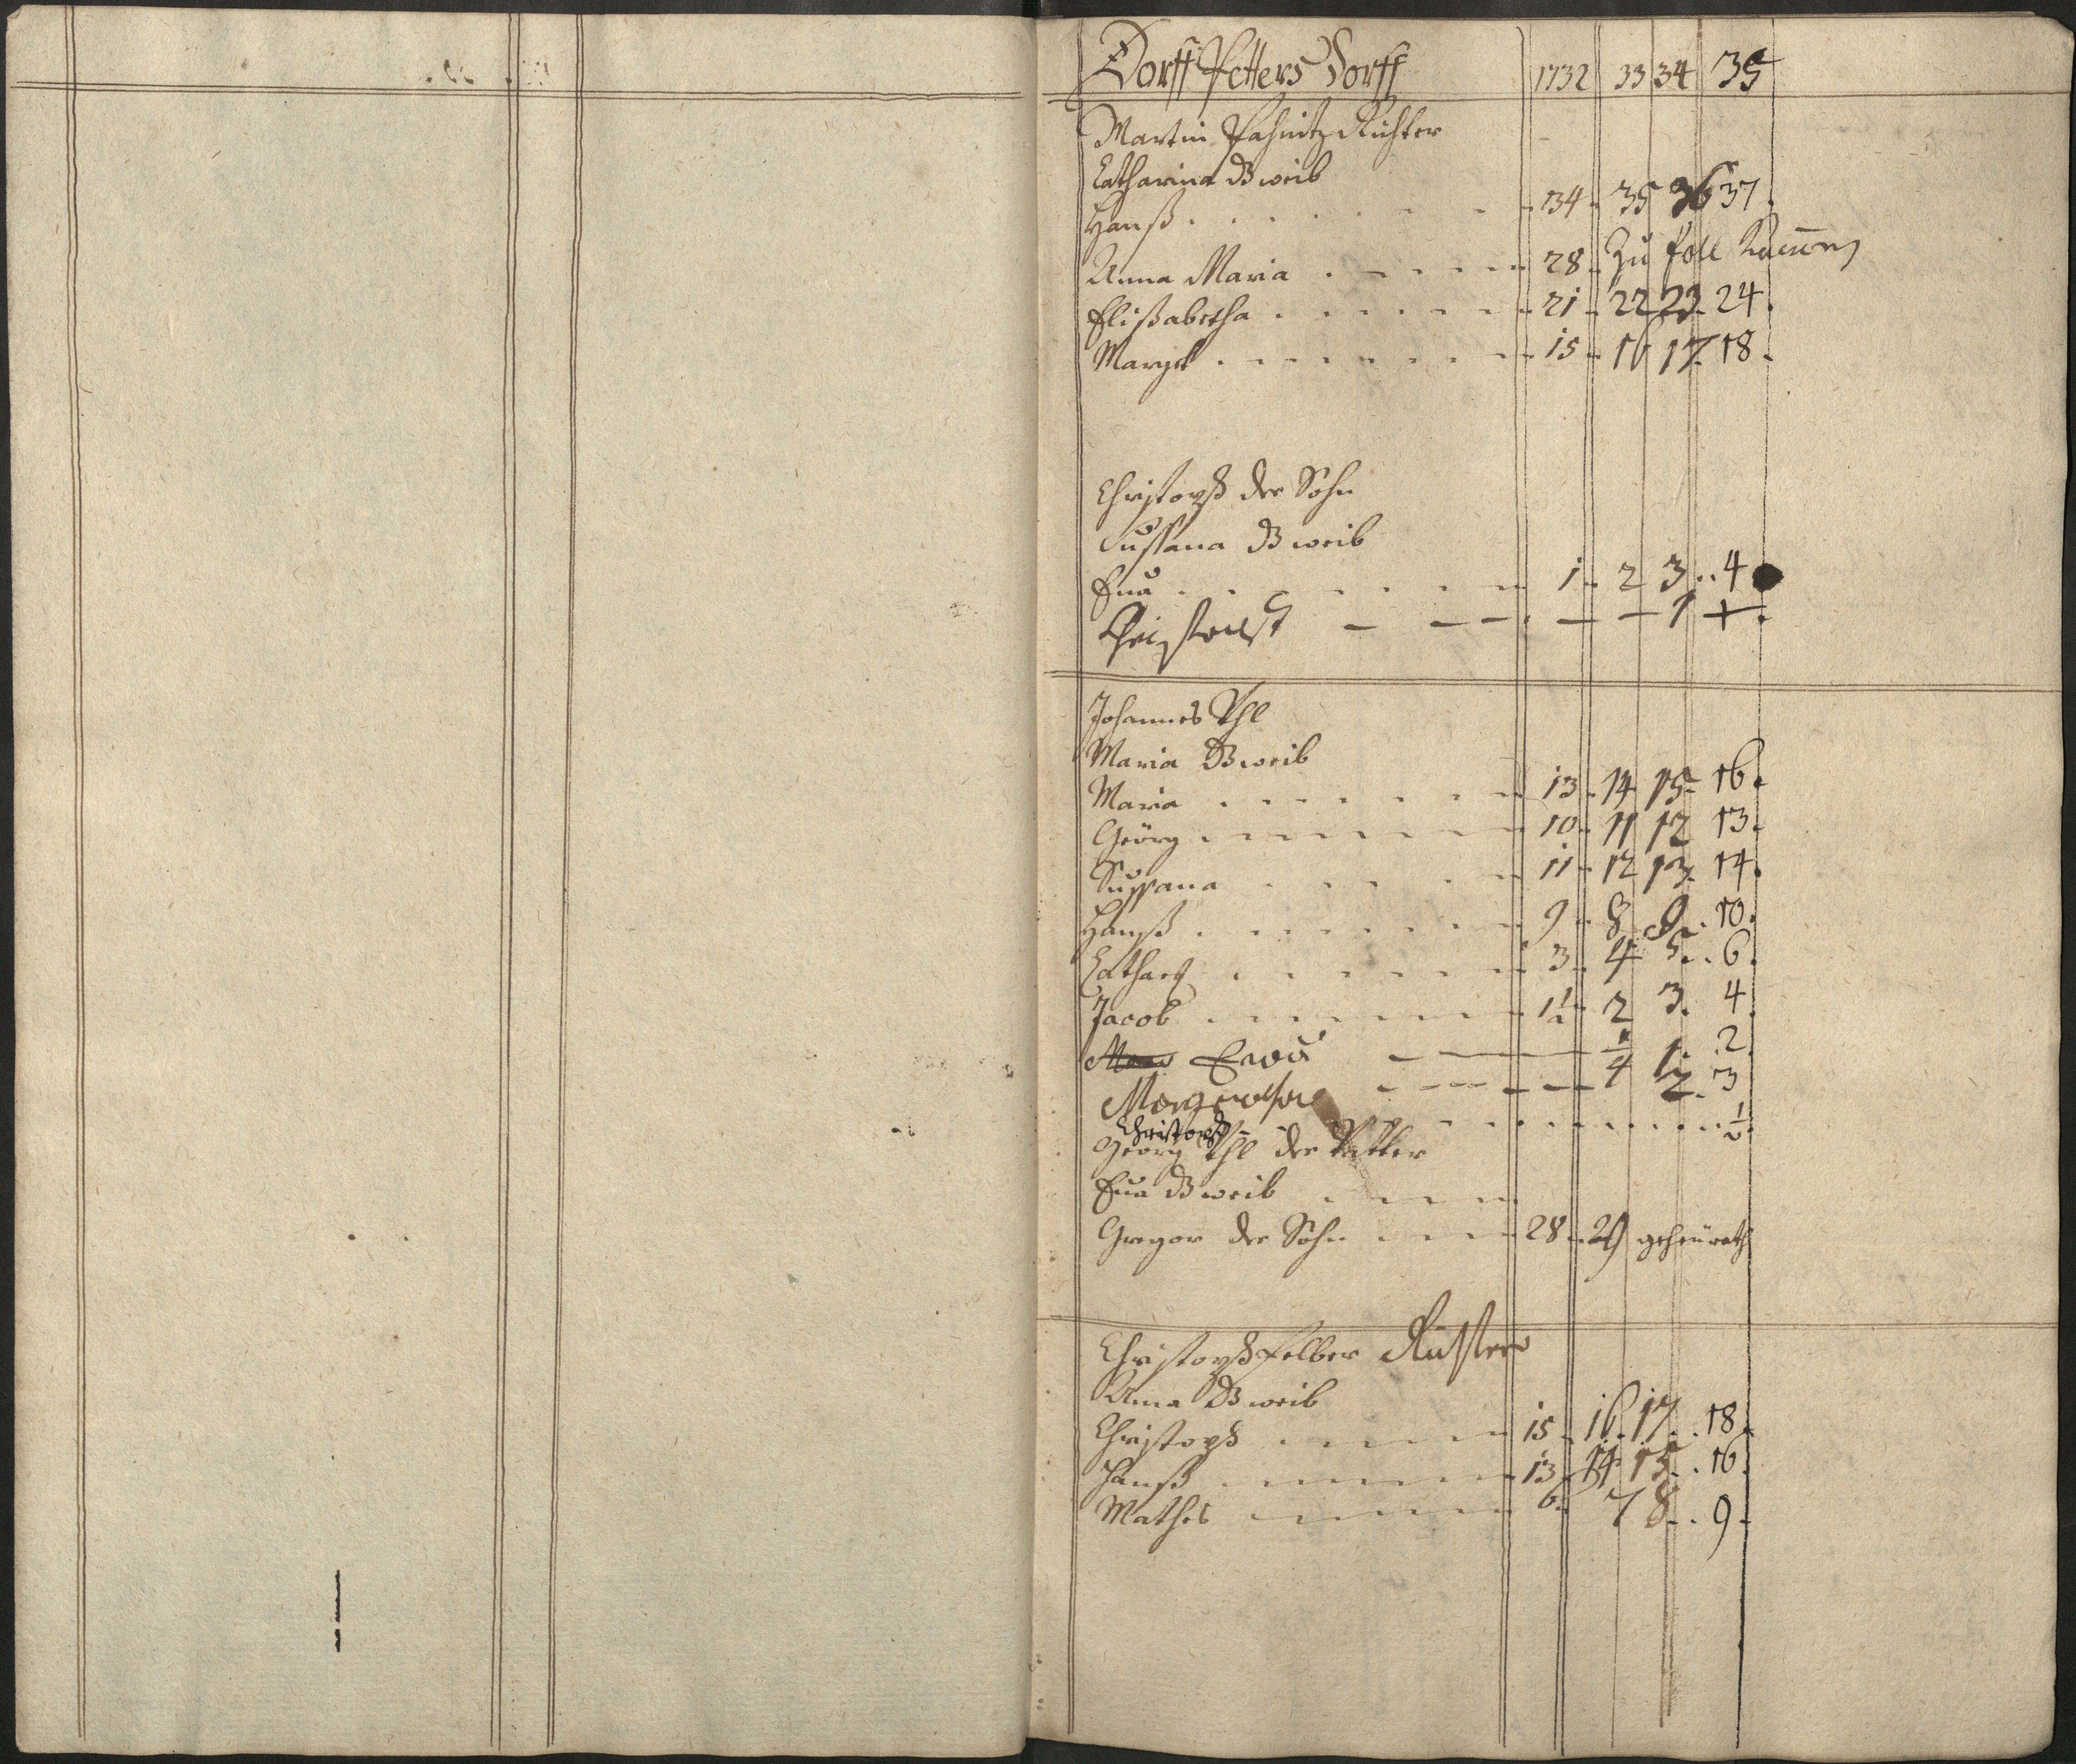 Dorff Petters Dorff 1732 33 34 35
Martin Pahnitz Richter
Catharina d weib
Hanß 34 35 36 37
Anna Maria 28 Zu
Elißabetha 21 22 23 24
Marget 15 16 17 18
Christoph der Sohn
Sussana d weib
Eua 1 2 3 4
Christoph 1 +
Johannes Ihl
Maria d weib
Maria 13 14 15 16
Geörg 10 11 12 13
Sussana 11 12 13 14
Hanß 9 8 9 10
Cathar 3 4 5 6
Jacob 1½ 2 3 4
Eva ¼ 1 2
Margaretha 2 3
Christoph ½
Georg Ihl der Vatter
Eua d weib
Gregor der Sohn 28 29 geheürath
Christoph Felber Richter
Anna d weib
Christoph 15 16 17 18
Hanß 13 14 15 16
Mathes 6 7 8 9